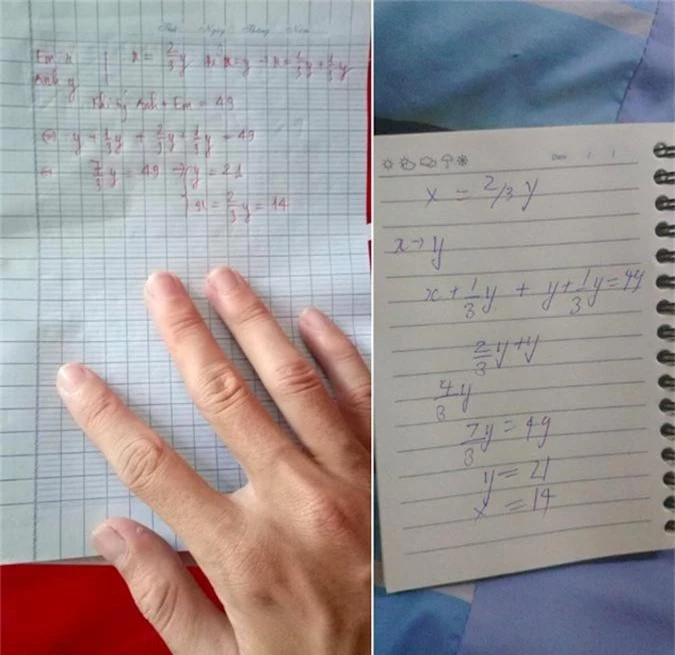 Thứ Ngày Tháng Năm
Em x x = 2/3 y x = y → x = 1/3 y + 2/3 y
Anh y
Khi ấy Anh + Em = 49
⇔ y + 1/3 y + 2/3 y + 1/3 y = 49
⇔ 7/3 y = 49 → y = 21
x = 2/3 y = 14
Date / /
x = 2/3 y
x → y
x + 1/3 y + y + 1/3 y = 49
2/3 y + y
4/3 y
7/3 y = 49
y = 21
x = 14